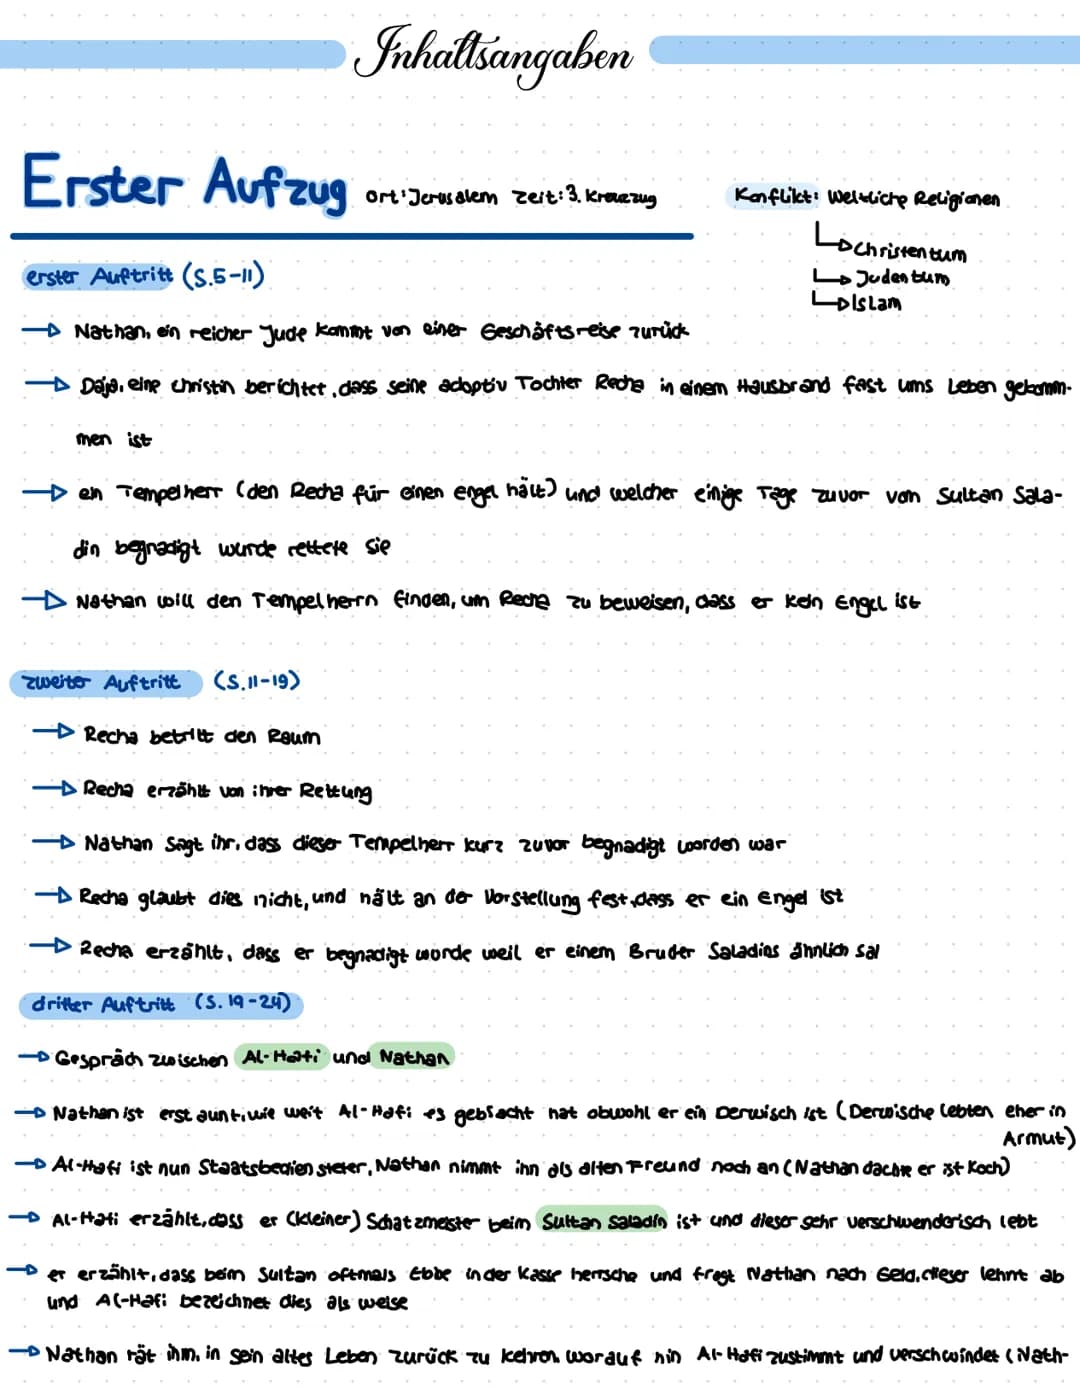 Inhaltsangaben
Erster Aufzug ort: Jerusalem zeit: 3. Kreuzzug
Konflikt: Weltliche Religionen
↳ Christentum
↳ Judentum
↳ Islam
erster Auftritt (S.5-11)
→ Nathan, ein reicher Jude kommt von einer Geschäftsreise zurück
→ Daja, eine christin berichtet, dass seine adoptiv Tochter Recha in einem Hausbrand fast ums Leben gekomm-
men ist
→ ein Tempelherr (den Recha für einen engel hält) und welcher einige Tage zuvor von Sultan Sala-
din begnadigt wurde rettete sie
→ Nathan will den Tempelherrn finden, um Recha zu beweisen, dass er kein Engel ist
zweiter Auftritt (S.11-19)
→ Recha betritt den Raum
→ Recha erzählt von ihrer Rettung
→ Nathan sagt ihr, dass dieser Tempelherr kurz zuvor begnadigt worden war
→ Recha glaubt dies nicht, und hält an der Vorstellung fest, dass er ein Engel ist
→ Recha erzählt, dass er begnadigt worde weil er einem Bruder Saladins ähnlich sah
dritter Auftritt (S. 19-24)
→ Gespräch zwischen Al-Hafi und Nathan
→ Nathan ist erstaunt, wie weit Al-Hafi es gebracht hat obwohl er ein Derwisch ist (Derwische lebten eher in
Armut)
→ Al-Hafi ist nun Staatsbediensteter, Nathan nimmt ihn als alten Freund noch an (Nathan dachte er ist Koch)
→ Al-Hafi erzählt, dass er (kleiner) Schatzmeister beim Sultan Saladin ist und dieser sehr verschwenderisch lebt
→ er erzählt, dass beim Sultan oftmals Ebbe in der Kasse herrsche und fragt Nathan nach Geld, dieser lehnt ab
und Al-Hafi bezeichnet dies als weise
→ Nathan rät ihm, in sein altes Leben zurück zu kehren, worauf hin Al-Hafi zustimmt und verschwindet (Nath-